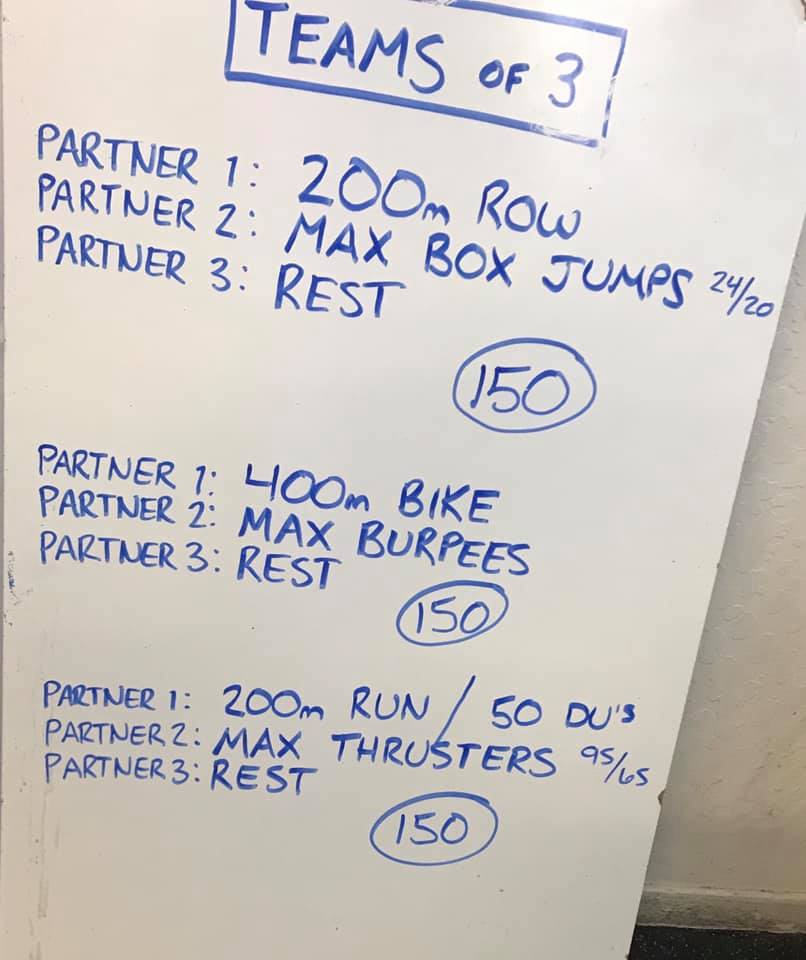 TEAMS OF 3
PARTNER 1: 200m ROW
PARTNER 2: MAX BOX JUMPS 24/20
PARTNER 3: REST
150
PARTNER 1: 400m BIKE
PARTNER 2: MAX BURPEES
PARTNER 3: REST
150
PARTNER 1: 200m RUN / 50 DU'S
PARTNER 2: MAX THRUSTERS 95/65
PARTNER 3: REST
150